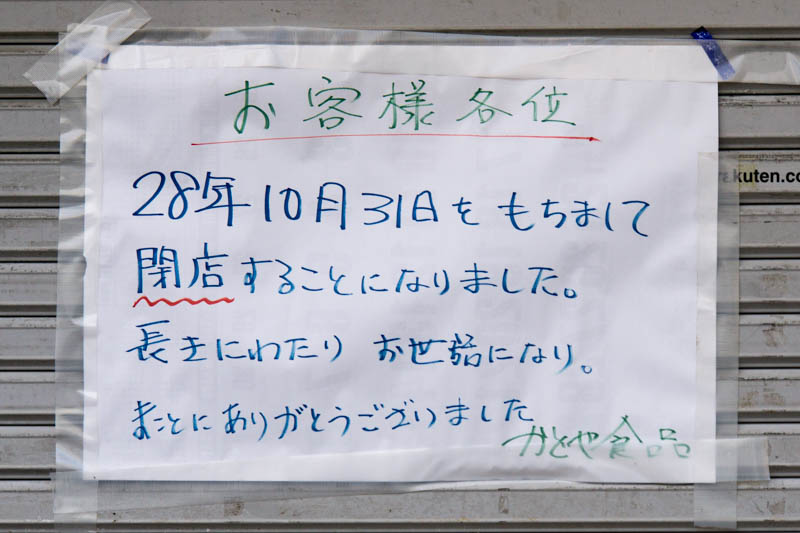 お客様各位
28年10月31日をもちまして
閉店することになりました。
長きにわたり お世話になり。
まことにありがとうございました
かどや食品
akuten.co